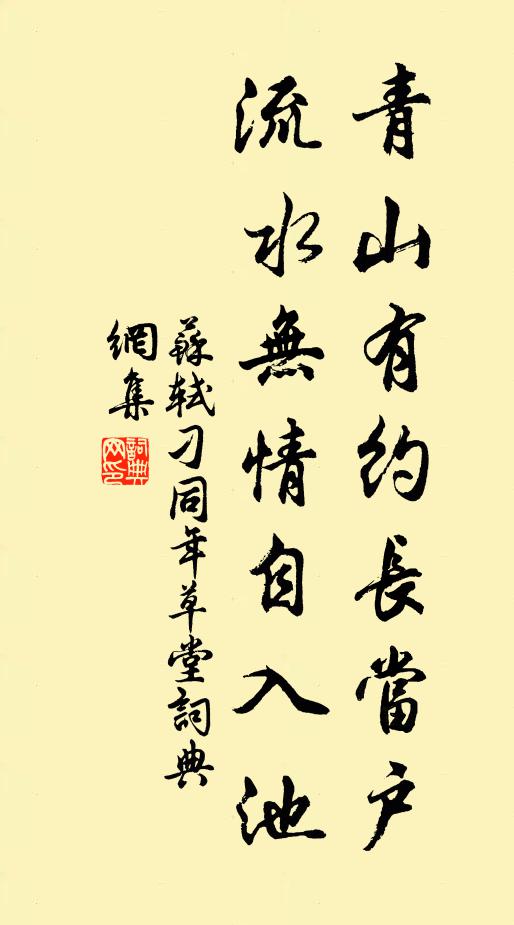 青山有約長當戶
流水無情自入池
蘇軾刁同年草堂詞典
網集
詞典
网印